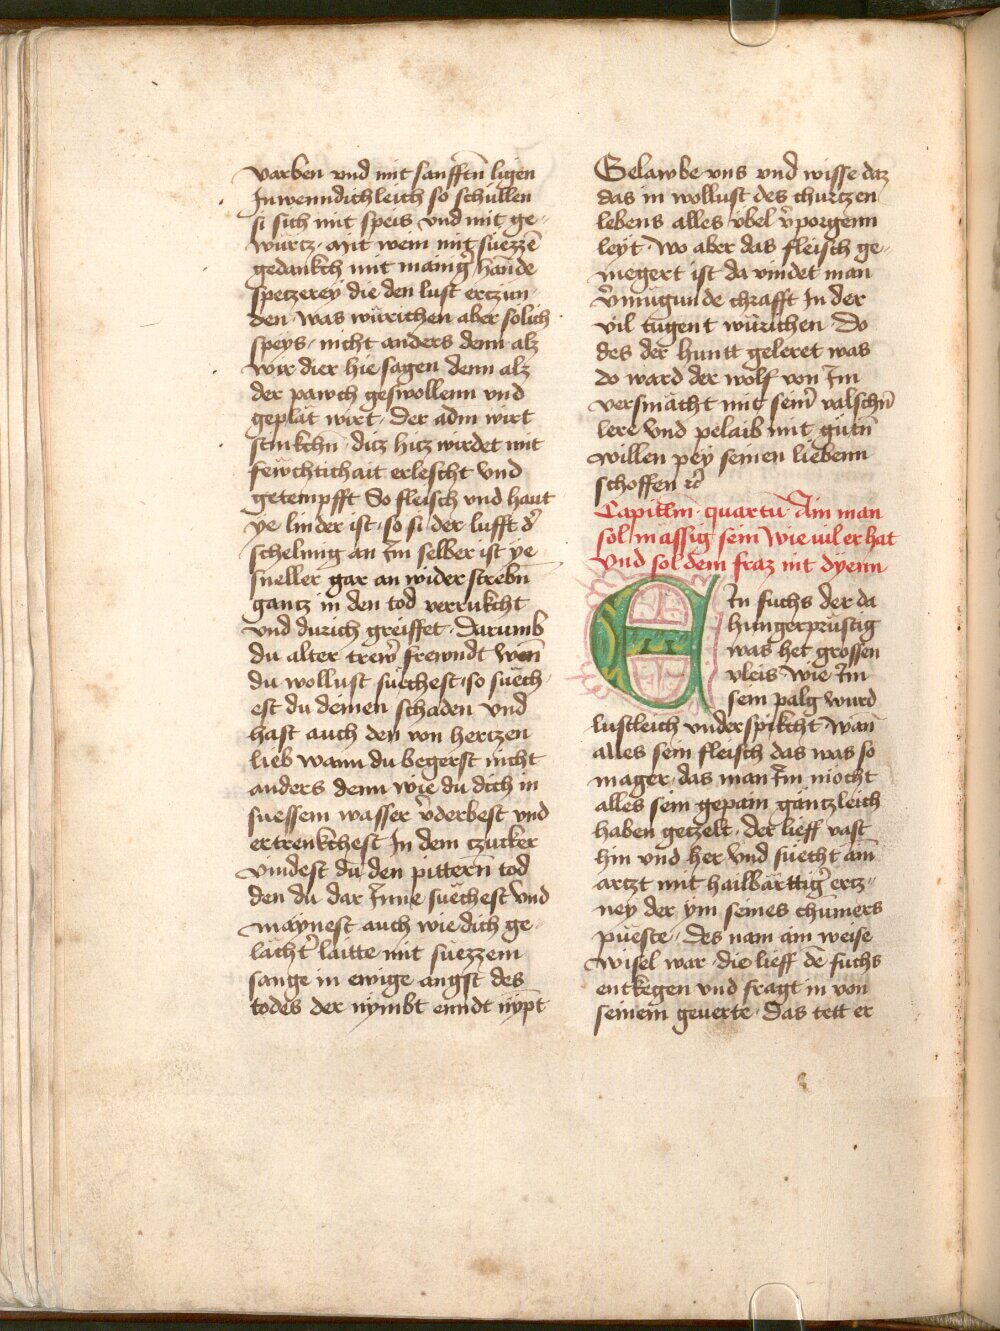 varben vnd mit sanfftn̄ ligen
Inwenndichleich so schüllen
si sich mit speis vnd mit ge-
würtz mit wein mit süezzē
gedankch mit mainigͬ hannde
speczerey die den lust erczün
den was würichen aber sölich
speys nicht anders denn alz
wir dier hie sagen denn alz
der pawch geswollenn vnd
geplät wirt der adm wirt
stinkchn̄ dicz hicz wirdet mit
fewchtichait erlescht vnd
getempfft So fleisch vnd haut
ye linder ist so si der lufft dͬ
schelung an im selber ist ye
sneller gar an wider strebn̄
gantz in den tod verrukcht
vnd durich greiffet Darumb
du alter trewͬ frewndt wen̄
du wollust suechest so suech
est du deinen schaden vnd
hast auch den von herczen
lieb wann du begerst nicht
anders denn wie du dich in
suessem wasser vͬderbest vnd
ertrenkchest In dem czucker
vindest du den pittern̄ tod
den du dar Inne suechest vnd
maynest auch wie dich ge
lachtͬ laitte mit süezzem
sange in ewige angst des
todes der nymbt enndt nÿpt
Gelawbe vns vnd wisse daz
das in wollust des churczen
lebens alles vbel vͬporgenn
leyt wo aber das fleisch ge-
megert ist da vindet man
vͬmügunde chrafft In der
vil tugent würichen Do
des der huntt geleret was
do ward der wolf von Im
versmächt mit seinͬ valschn̄
lere vnd pelaib mit gütn̄
willen pey seinen liebenn
schoffen ꝛcͬ
Capitlm̄ quartū Ain man
sol mässig sein wie vil er hat
vnd sol dem fraz nit dyenn
EIn fuchs der da
hungerprüstig
was het grossen
vleis wie Im
sein palg wurd
lustleich vnderspikcht wan̄
alles sein fleisch das was so
mager das man Im mocht
alles sein gepain gänczleich
haben geczelt der lieff vast
hin vnd her vnd suecht ain̄
arczt mit hailbärttigͬ ercz-
ney der ym seines chumers
püeste Des nam ain weise
wisel war die lieff dē fuchs
entkegen vnd fragt in von
seinem geuerte Das tett er